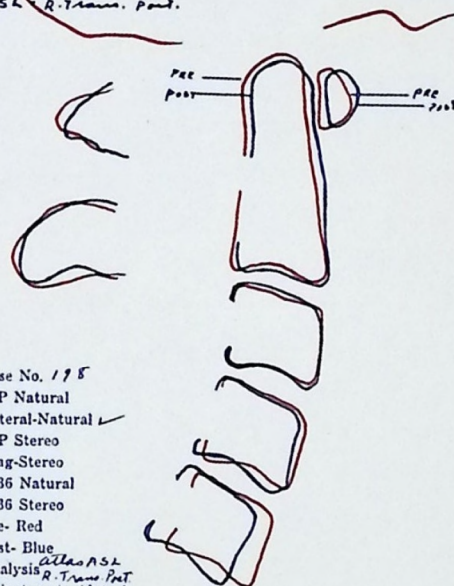 R. Trans. Post.
PRE
POST
PRE
POST
se No. 198
P Natural
teral-Natural ✓
P Stereo
ng-Stereo
36 Natural
36 Stereo
e- Red
st- Blue
alysis Atlas ASL
R. Trans. Post.